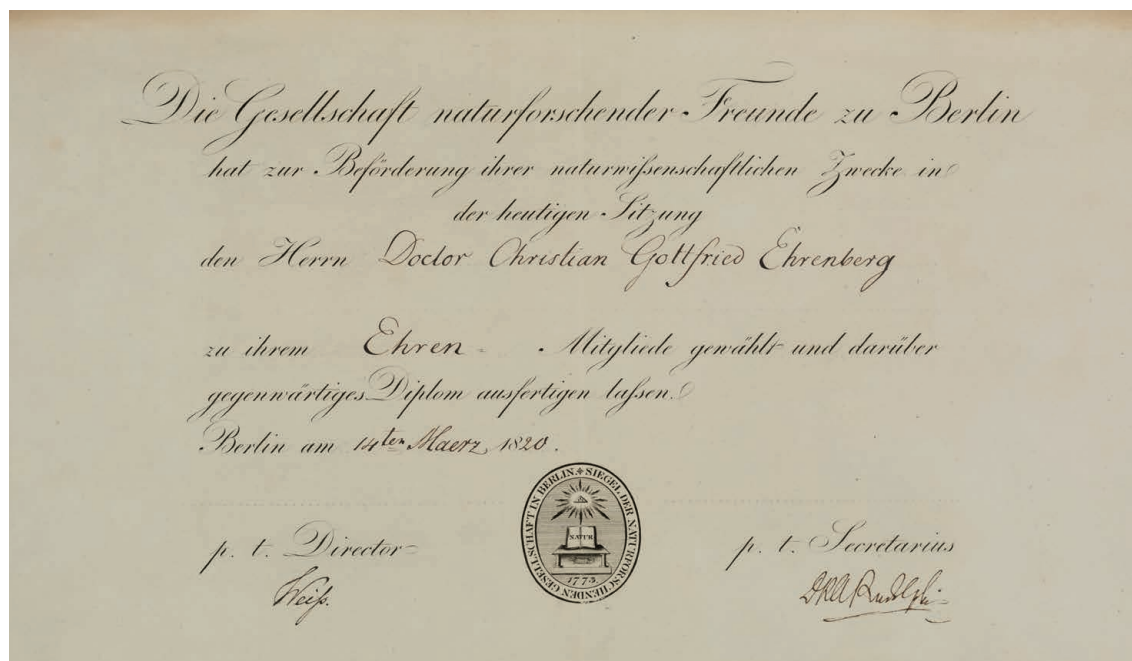 Die Gesellschaft naturforschender Freunde zu Berlin
hat zur Beförderung ihrer naturwißenschaftlichen Zwecke in
der heutigen Sitzung
den Herrn Doctor Christian Gottfried Ehrenberg
zu ihrem Ehren- Mitgliede gewählt und darüber
gegenwärtiges Diplom ausfertigen laßen.
Berlin am 14ten Maerz 1820.
SIEGEL DER NATURFORSCHENDEN GESELLSCHAFT IN BERLIN
NATUR
1773
p. t. Director
Weiß.
p. t. Secretarius
D KA Rudolphi